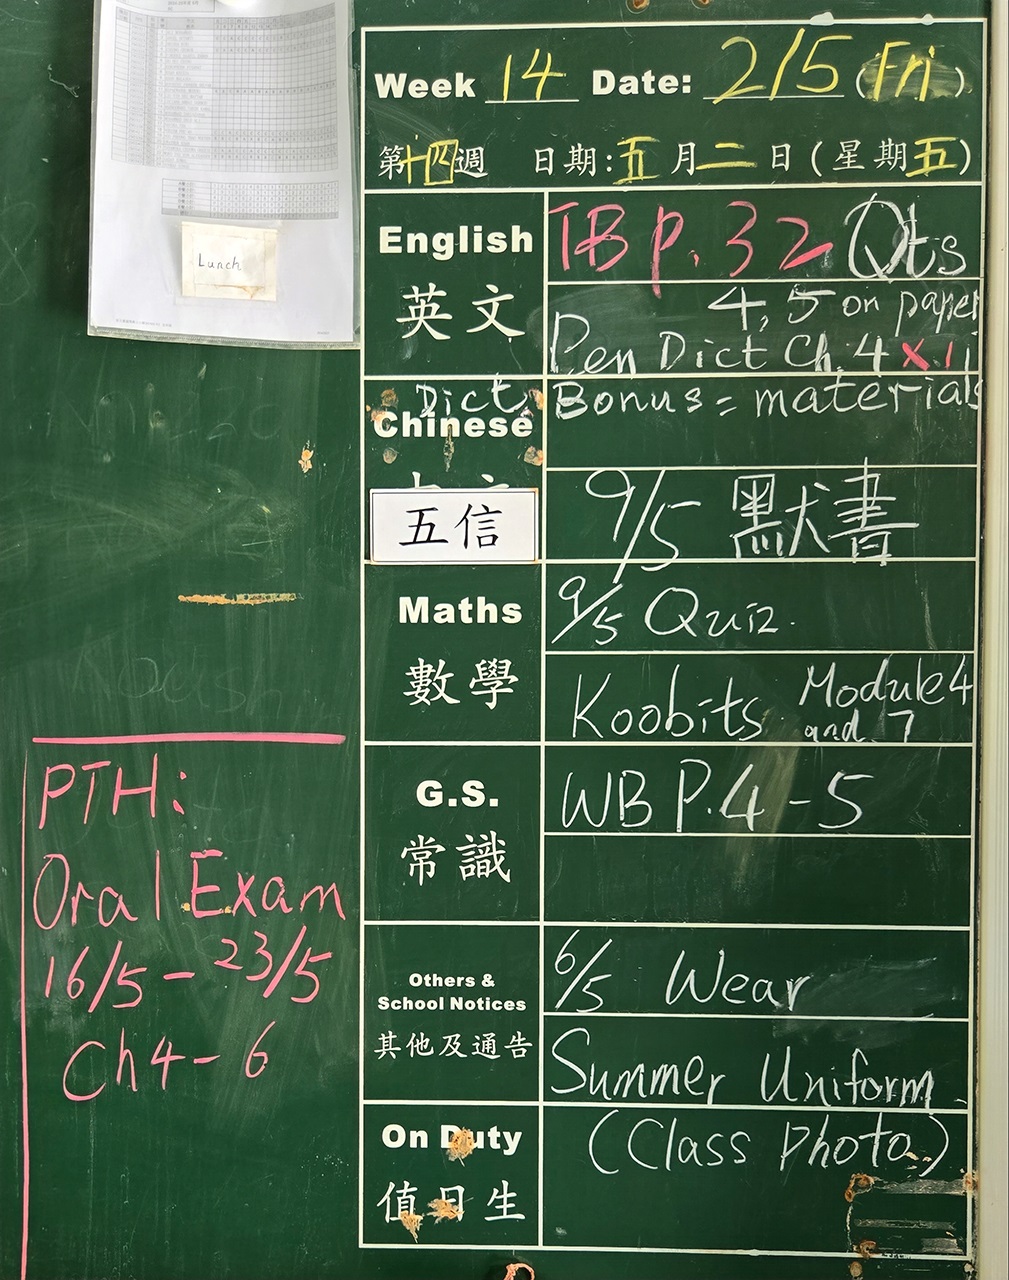 Lunch
Week 14 Date: 2/5 (Fri)
第十四週 日期:五月二日(星期五)
English
英文
TB P.32 Qts
4,5 on paper
Pen Dict Ch.4 x1
Dict Bonus = materials
Chinese
五信
9/5 默書
Maths
數學
9/5 Quiz.
Koobits Module 4
and 7
G.S.
常識
WB P.4-5
Others &
School Notices
其他及通告
6/5 Wear
Summer Uniform
(Class Photo)
On Duty
值日生
PTH:
Oral Exam
16/5 - 23/5
Ch4 - 6